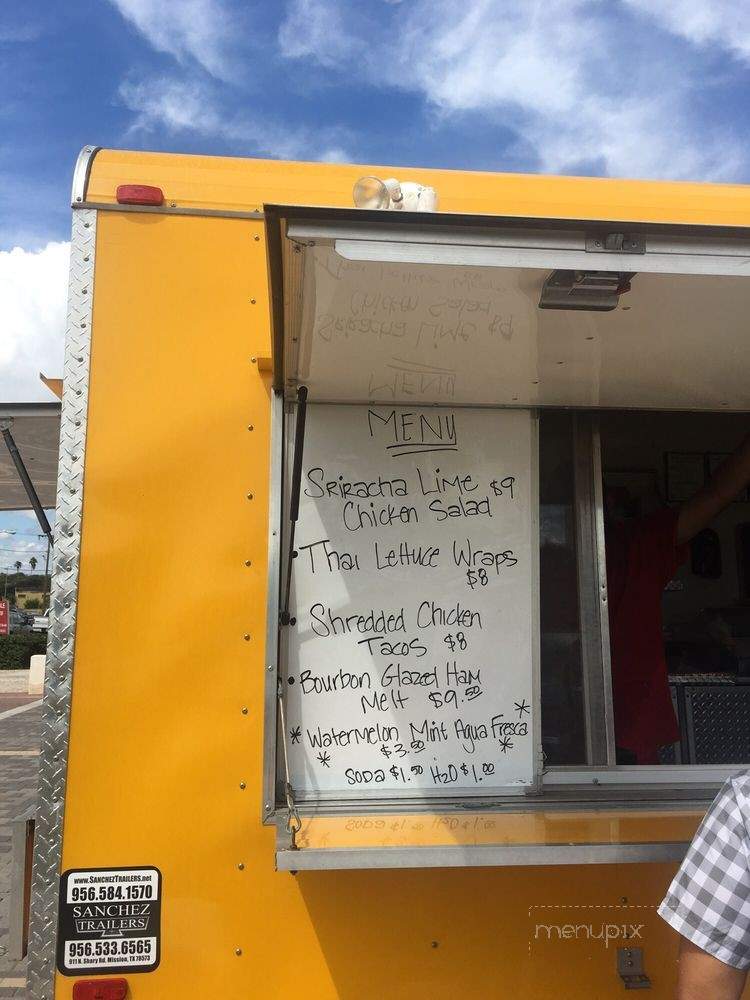 MENU
Sriracha Lime $9
Chicken Salad
• Thai Lettuce Wraps
$8
• Shredded Chicken
Tacos $8
• Bourbon Glazed Ham
Melt $9.50
* Watermelon Mint Agua Fresca *
* $3.50 *
SODA $1.50 H2O $1.00
www.SanchezTrailers.net
956.584.1570
SANCHEZ
TRAILERS
956.533.6565
911 N. Shary Rd. Mission, TX 78573
menupix